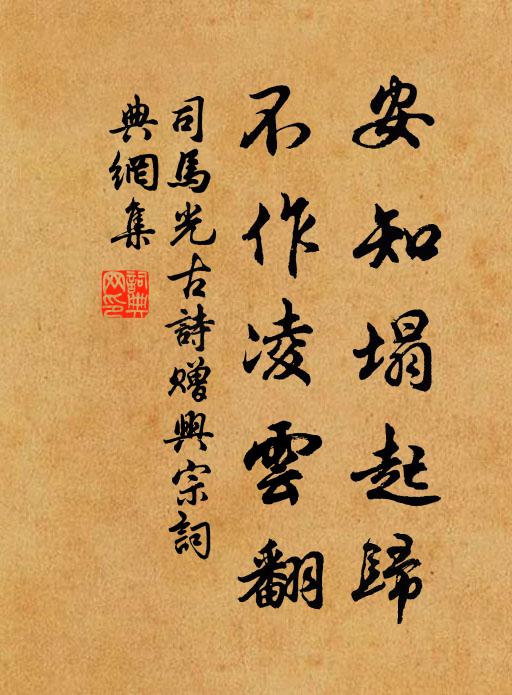 安知塌起歸
不作凌雲翻
司馬光古詩贈興宗詞
典網集
詞典
网印